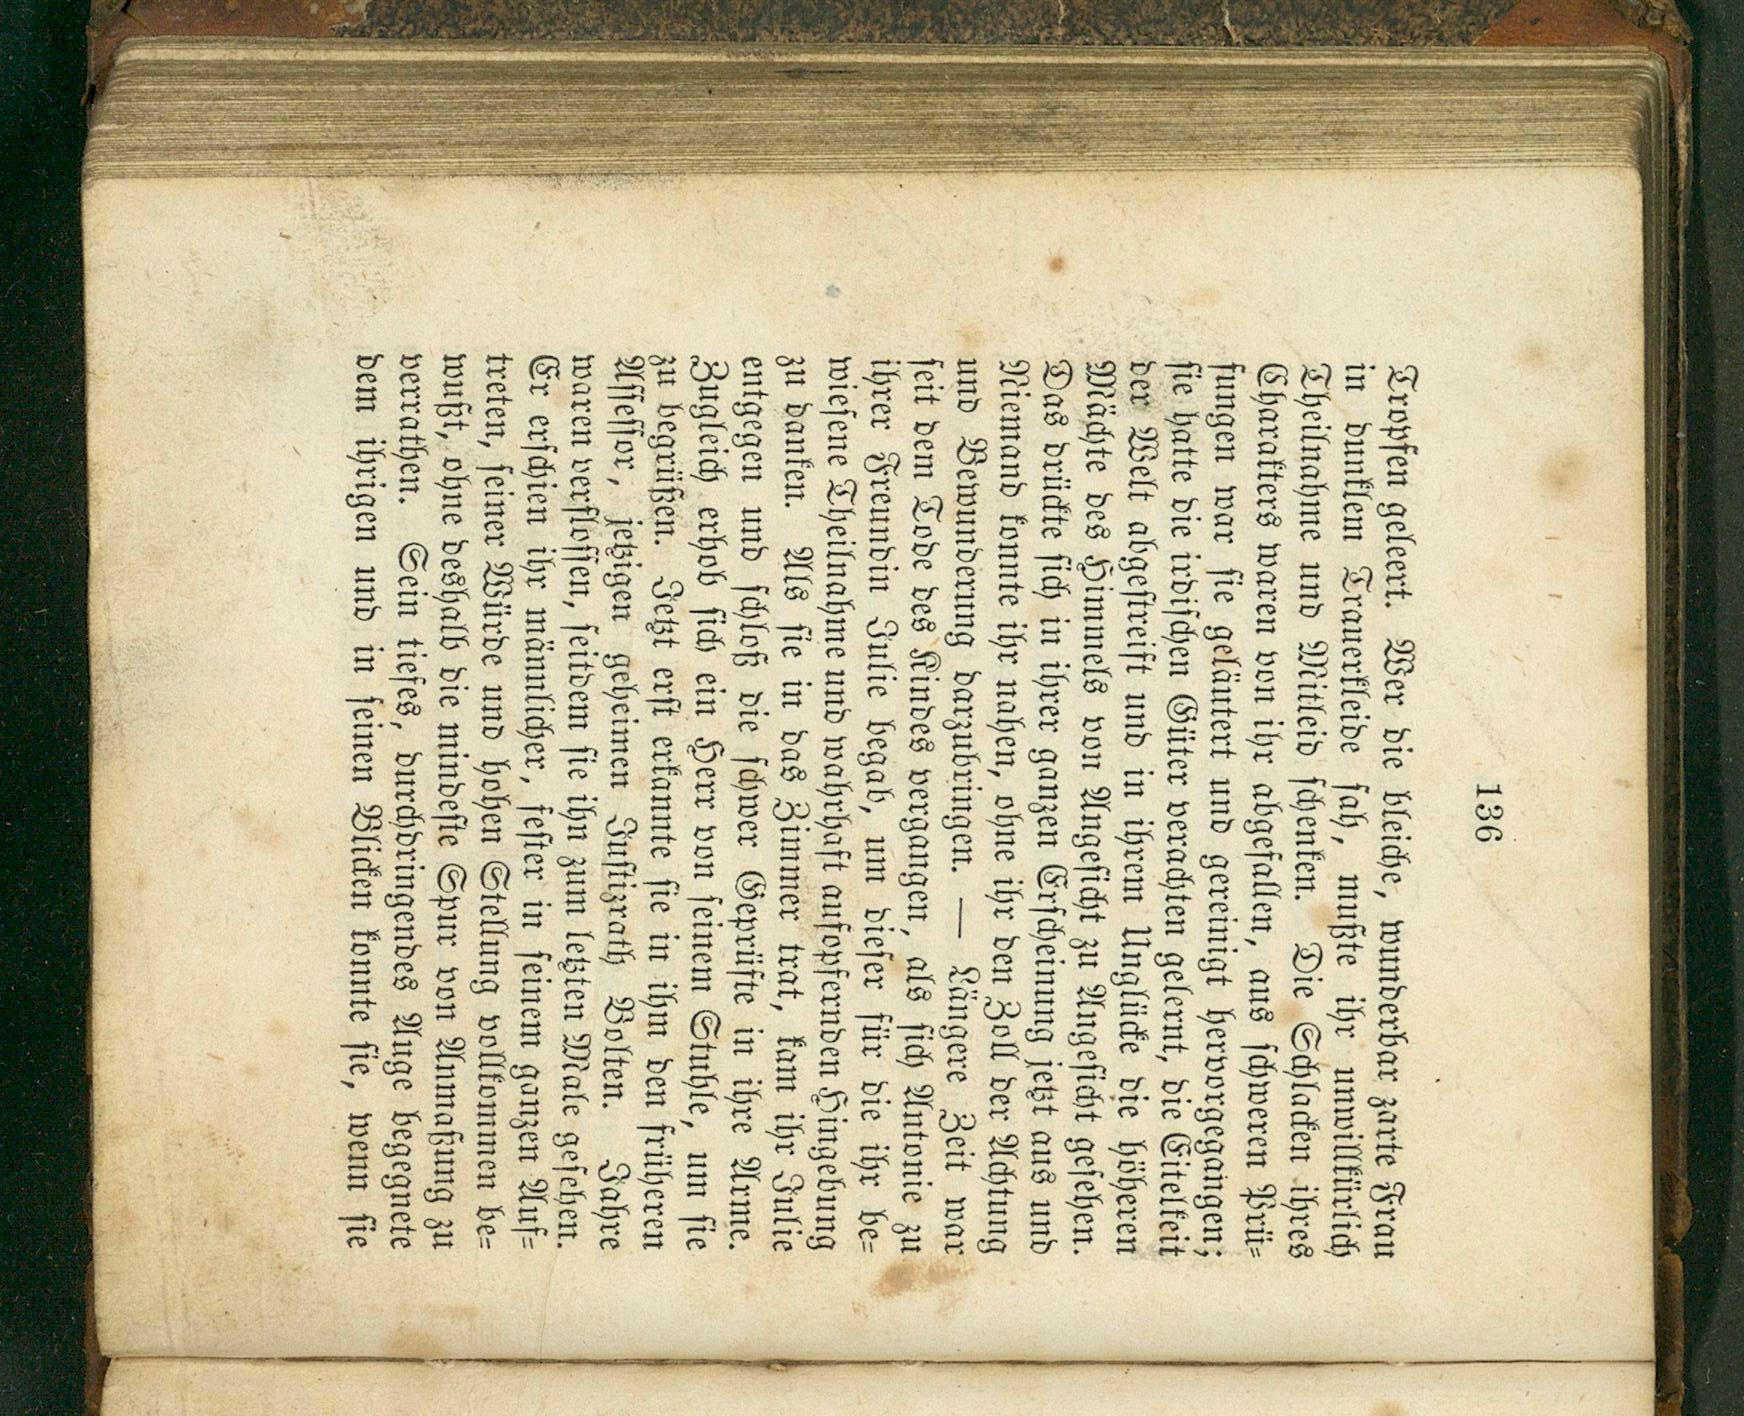 136
Tropfen geleert. Wer die bleiche, wunderbar zarte Frau
in dunklem Trauerkleide sah, mußte ihr unwillkürlich
Theilnahme und Mitleid schenken. Die Schlacken ihres
Charakters waren von ihr abgefallen, aus schweren Prü=
fungen war sie geläutert und gereinigt hervorgegangen;
sie hatte die irdischen Güter verachten gelernt, die Eitelkeit
der Welt abgestreift und in ihrem Unglücke die höheren
Mächte des Himmels von Angesicht zu Angesicht gesehen.
Das drückte sich in ihrer ganzen Erscheinung jetzt aus und
Niemand konnte ihr nahen, ohne ihr den Zoll der Achtung
und Bewunderung darzubringen. — Längere Zeit war
seit dem Tode des Kindes vergangen, als sich Antonie zu
ihrer Freundin Julie begab, um dieser für die ihr be=
wiesene Theilnahme und wahrhaft aufopfernden Hingebung
zu danken. Als sie in das Zimmer trat, kam ihr Julie
entgegen und schloß die schwer Geprüfte in ihre Arme.
Zugleich erhob sich ein Herr von seinem Stuhle, um sie
zu begrüßen. Jetzt erst erkannte sie in ihm den früheren
Assessor, jetzigen geheimen Justizrath Bolten. Jahre
waren verflossen, seitdem sie ihn zum letzten Male gesehen.
Er erschien ihr männlicher, fester in seinem ganzen Auf=
treten, seiner Würde und hohen Stellung vollkommen be=
wußt, ohne deshalb die mindeste Spur von Anmaßung zu
verrathen. Sein tiefes, durchdringendes Auge begegnete
dem ihrigen und in seinen Blicken konnte sie, wenn sie